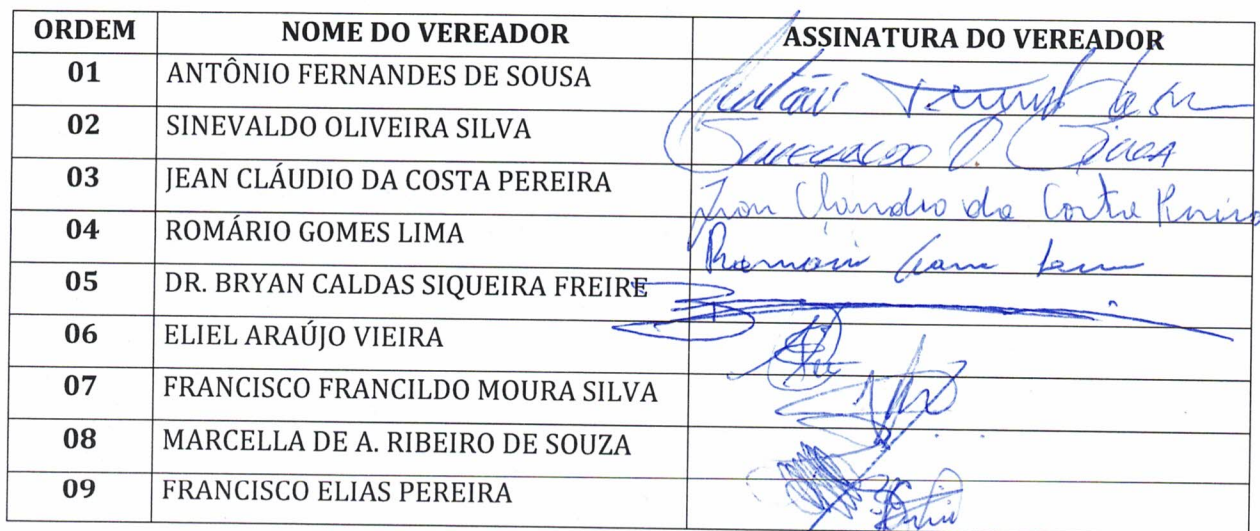 ORDEM NOME DO VEREADOR ASSINATURA DO VEREADOR
01 ANTÔNIO FERNANDES DE SOUSA
02 SINEVALDO OLIVEIRA SILVA
03 JEAN CLÁUDIO DA COSTA PEREIRA Jean Claudio da Costa Pereira
04 ROMÁRIO GOMES LIMA
05 DR. BRYAN CALDAS SIQUEIRA FREIRE
06 ELIEL ARAÚJO VIEIRA
07 FRANCISCO FRANCILDO MOURA SILVA
08 MARCELLA DE A. RIBEIRO DE SOUZA
09 FRANCISCO ELIAS PEREIRA